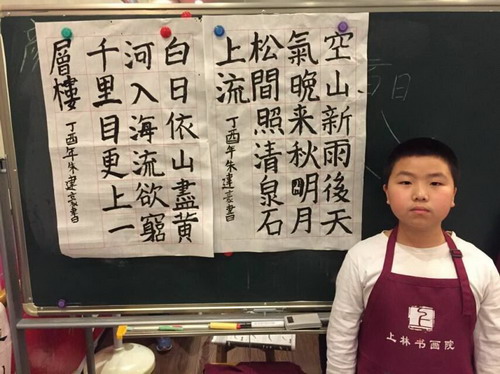 空山新雨後天
氣晚来秋明月
松間照清泉石
上流
丁酉年朱建豪書
白日依山盡黃
河入海流欲窮
千里目更上一
層樓
丁酉年朱建豪書
上林书画院